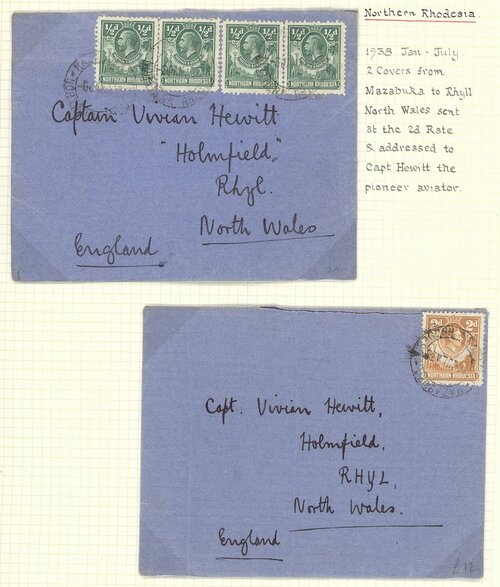 Northern Rhodesia.
1938 Jan - July
2 Covers from
Mazabuka to Rhyll
North Wales sent
at the 2d Rate
& addressed to
Capt Hewitt the
pioneer aviator.
½d ½d ½d ½d ½d ½d ½d ½d
NORTHERN RHODESIA NORTHERN RHODESIA NORTHERN RHODESIA NORTHERN RHODESIA
Captain Vivian Hewitt
"Holmfield"
Rhyl.
North Wales
England
2d 2d
NORTHERN RHODESIA
Capt. Vivian Hewitt,
Holmfield,
RHYL,
North Wales.
England
£12